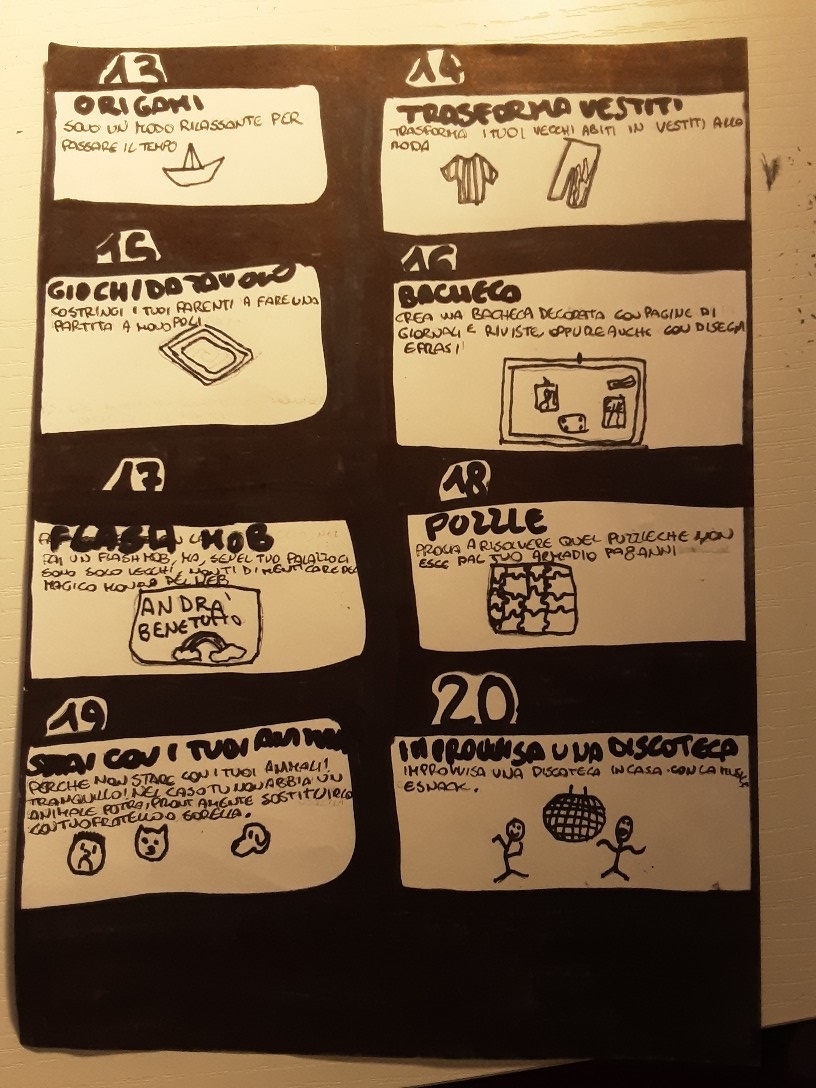 13
ORIGAMI
SONO UN MODO RILASSANTE PER
PASSARE IL TEMPO
14
TRASFORMA VESTITI
TRASFORMA I TUOI VECCHI ABITI IN VESTITI ALLA
MODA
15
GIOCHI DA TAVOLO
COSTRINGI I TUOI PARENTI A FARE UNA
PARTITA A MONOPOLI
16
BACHECA
CREA UNA BACHECA DECORATA CON PAGINE DI
GIORNALI E RIVISTE, OPPURE ANCHE CON DISEGNI
E FRASI!
17
FLASH MOB
FAI UN FLASH MOB, MA, SE NEL TUO PALAZZO CI
SONO SOLO VECCHI, NON TI DIMENTICARE DEL
MAGICO MONDO DEL WEB
ANDRA'
BENE TUTTO
18
PUZZLE
PROVA A RISOLVERE QUEL PUZZLE CHE NON
ESCE DAL TUO ARMADIO DA 8 ANNI
19
STAI CON I TUOI ANIMALI
PERCHE NON STARE CON I TUOI ANIMALI!
TRANQUILLO! NEL CASO TU NON ABBIA UN
ANIMALE POTRAI PRONTAMENTE SOSTITUIRLO
CON TUO FRATELLO O SORELLA.
20
IMPROVVISA UNA DISCOTECA
IMPROVVISA UNA DISCOTECA IN CASA. CON LA MUSICA
E SNACK.